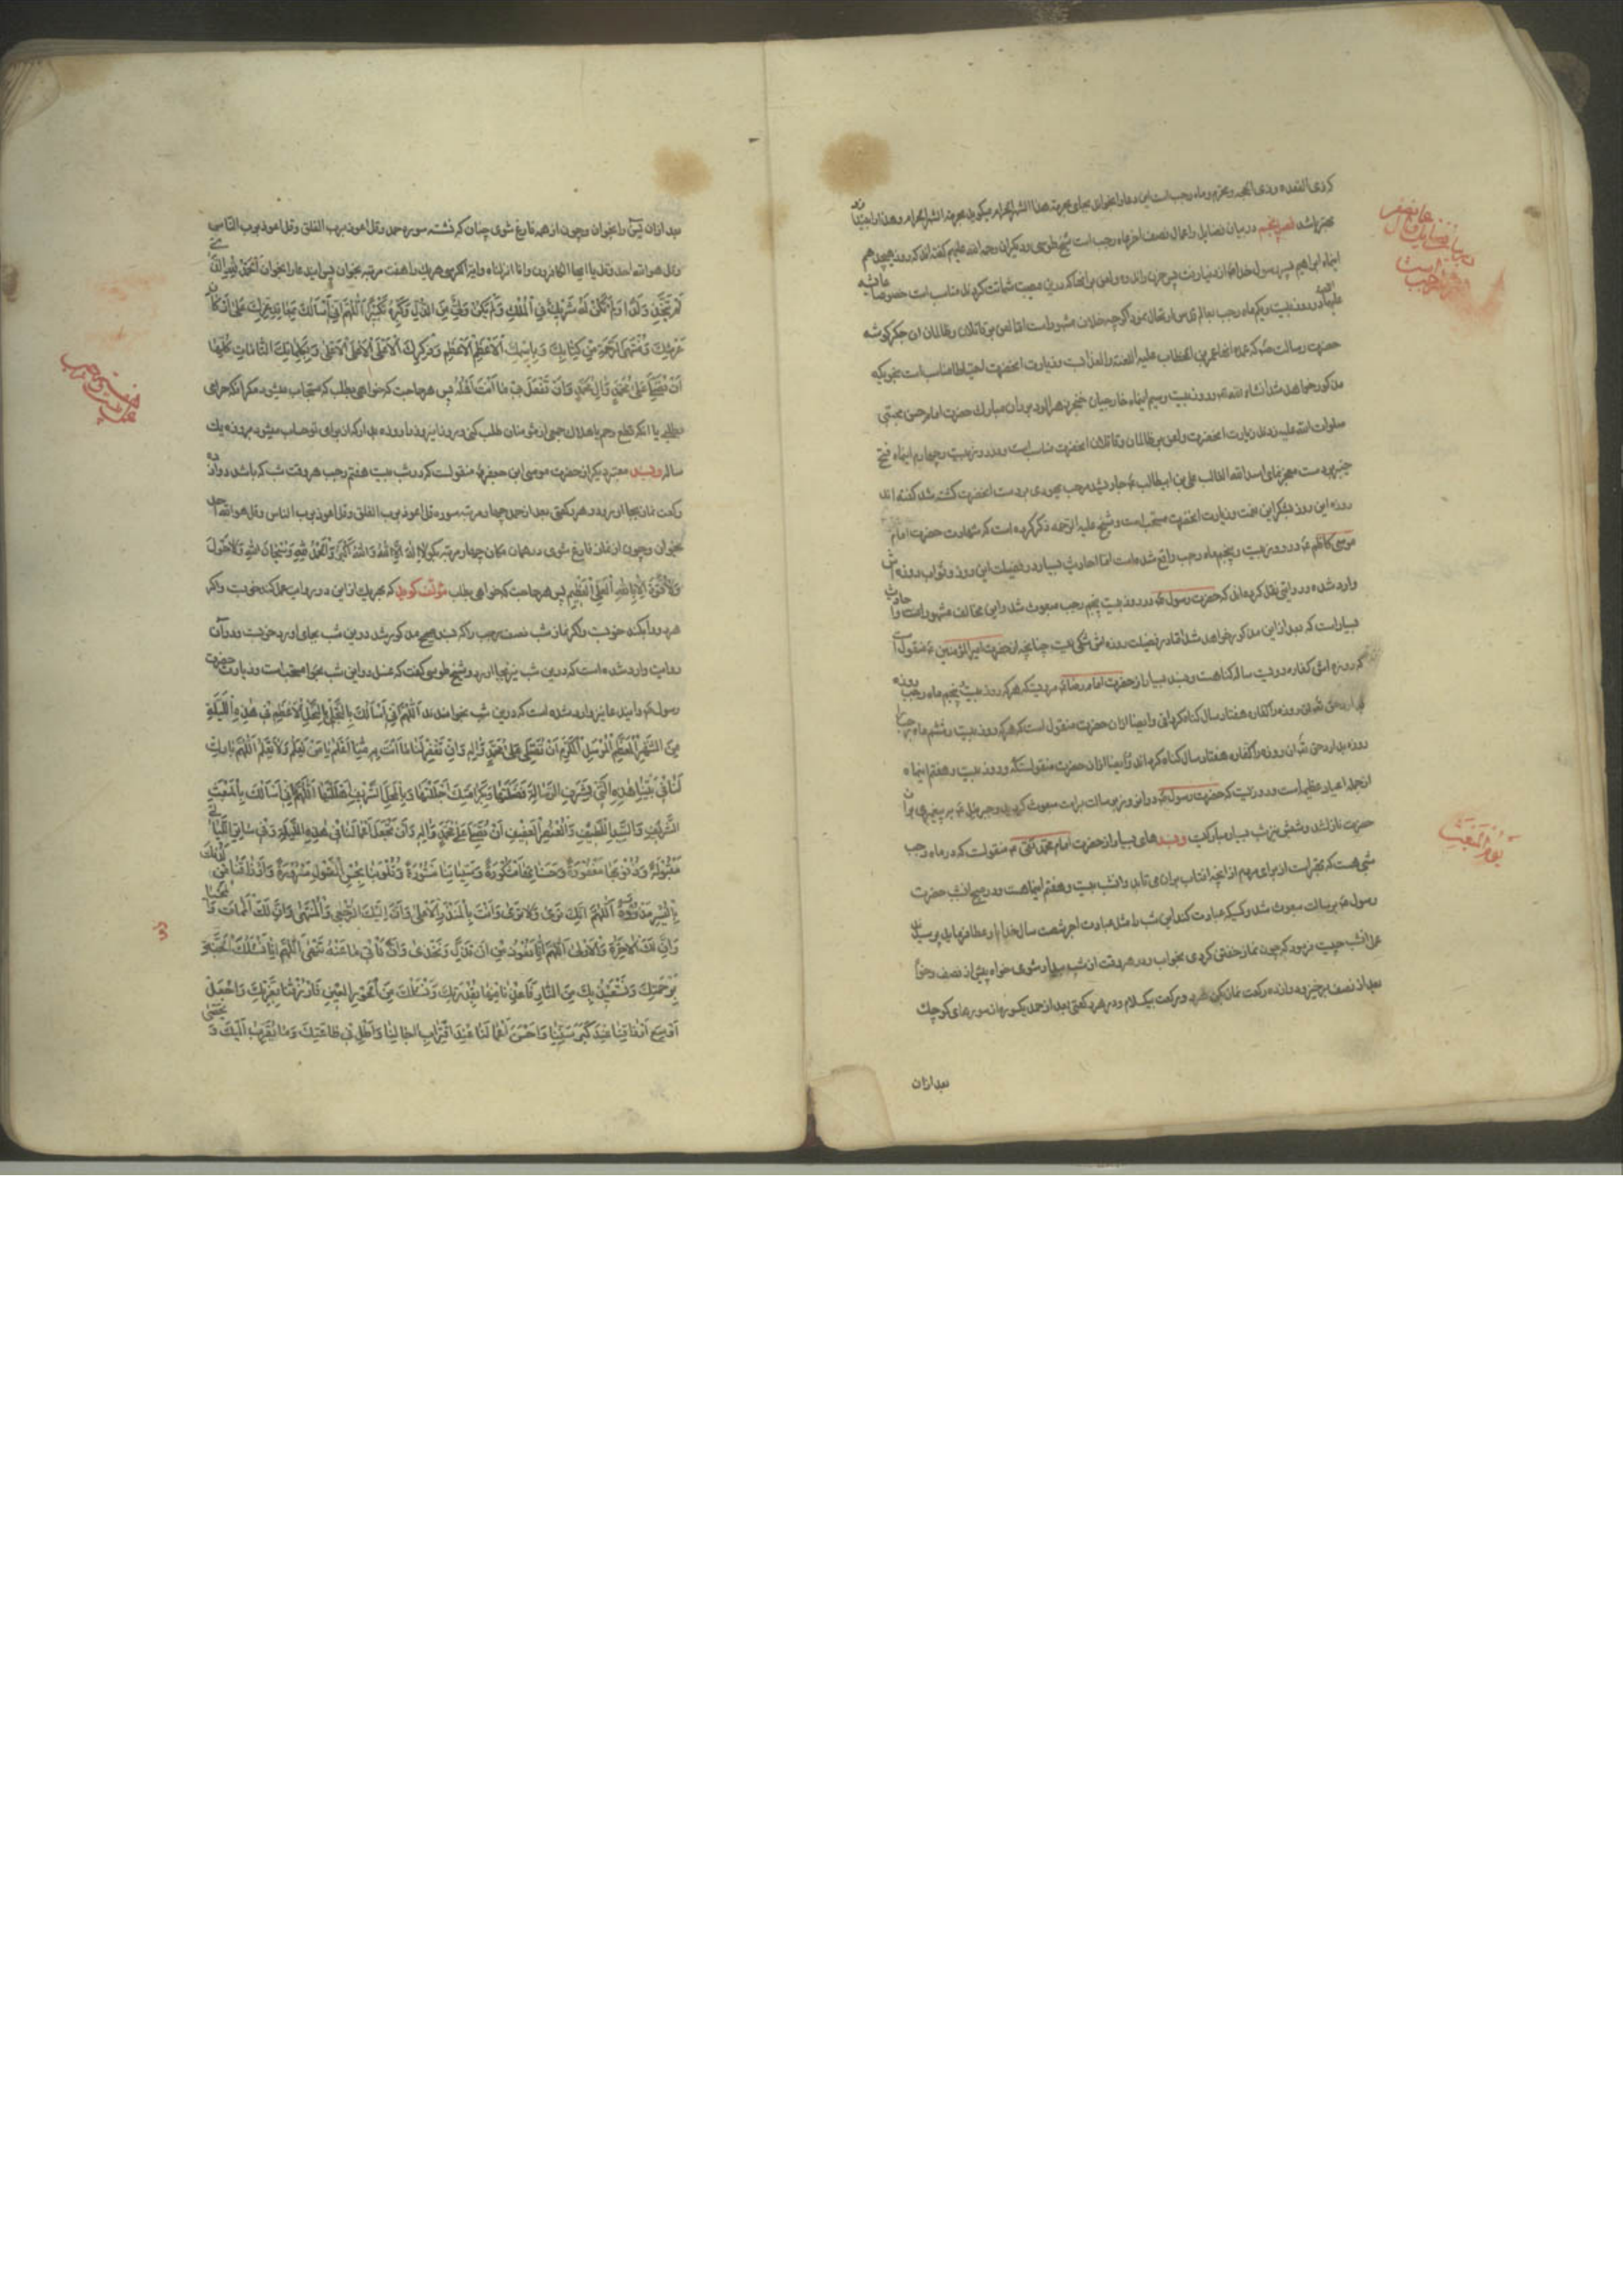 که ذی القعده و ذی الحجه و محرم و ماه رجب است این دعا را بخوانی بجای بحرمة هذا الشهر الحرام میگوید بحرمة الشهر الحرام و هذا دار اجتهاد
بهتر باشد فصل پنجم در بیان فضایل و اعمال نصف اخر ماه رجب است شیخ طوسی و دیگران رحمه الله علیهم گفته اند که روز هیجدهم
اینماه ابراهیم پسر رسول خدا از دنیا رفت پس حزن و اندوه و لعن بر انها که درین مصیبت شماتت کرده اند مناسب است خصوصا عایشه
علیها و در روز بیست و یکم ماه رجب اگر چه خلاف مشهور است اما لعن بر قاتلان و ظالمان ان جگر گوشه
حضرت رسالت که عمده انها عمر بن الخطاب علیه اللعنه و العذاب و زیارت انحضرت احتیاطا مناسب است بنحویکه
مذکور خواهد شد انشاء الله و در روز بیست و سیم اینماه خارجیان خنجر زهرالود بر ران مبارک حضرت امام حسن مجتبی
صلوات الله علیه زدند زیارت انحضرت و لعن بر ظالمان و قاتلان انحضرت مناسب است و در روز بیست و چهارم اینماه فتح
خیبر بر دست معجزنمای اسد الله الغالب علی بن ابیطالب ع جاری شد مرحب یهودی بر دست انحضرت کشته شد گفته اند
روزه این روز بشکر این نعمت و زیارت انحضرت مستحب است و شیخ علیه الرحمه ذکر کرده است که شهادت حضرت امام
موسی کاظم ع در روز بیست و پنجم ماه رجب واقع شده است اما احادیث بسیار در فضیلت این روز و ثواب روزه اش
وارد شده و روایتی نقل کرده اند که حضرت رسول در روز بیست پنجم رجب مبعوث شد و این مخالف مشهور است و احادیث
بسیار است که بعد از این مذکور خواهد شد اما در فضیلت روزه اش شکی نیست چنانچه از حضرت امیر المؤمنین ع منقول است
که روزه اش کفاره دویست ساله گناهست و بسند بسیار از حضرت امام رضا ع مرویست که هر که روز بیست پنجم ماه رجب روزه
بدارد حق تعالی ان روزه را کفاره هفتاد سال گناه گرداند و ایضا از ان حضرت منقول است که هر که روز بیست و ششم ماه رجب
روزه بدارد حق تعالی ان روزه را کفاره هشتاد سال گناه گرداند و ایضا از ان حضرت منقولست که و روز بیست و هفتم اینماه
از جمله اعیاد عظیمه است و در روزیست که حضرت رسول در ان روز برسالت مبعوث گردید و جبرئیل به پیغمبری بر ان
حضرت نازل شد و شبش نیز شب بسیار مبارکیست و بسند های بسیار از حضرت امام محمد تقی ع منقولست که در ماه رجب
شبی هست که بهتر است از برای مردم از انچه افتاب بر ان می تابد و ان شب بیست و هفتم اینماهست و در صبح انشب حضرت
رسول برسالت مبعوث شد و کسیکه عبادت کند این شب را مثل عبادت اجر شصت سال خدا او را عطا فرماید پرسیدند
عمل انشب چیست فرمود که چون نماز خفتن کردی بخواب و در هر وقت از شب بیدار شوی خواه پیش از نصف و خواه
بعد از نصف برخیز و دوازده رکعت نماز بکن هر دو رکعت بیک سلام و در هر رکعتی بعد از حمد یکسوره از سوره های کوچک
بعد از ان
در بیان فضایل و اعمال نصف اخر رجب است
یوم المبعث
بعد از ان یس را بخوان و چون از همه فارغ شوی چنان که نشسته سوره حمد و قل اعوذ برب الفلق و قل اعوذ برب الناس
و قل هو الله احد و قل یا ایها الکافرون و انا انزلناه و ایة الکرسی هر یک را هفت مرتبه بخوان پس ایندعا را بخوان اَلْحَمْدُ لِلّهِ الَّذی
لَمْ یَتَّخِذْ وَلَدًا وَلَمْ یَکُنْ لَهُ شَریکٌ فِی الْمُلْکِ وَلَمْ یَکُنْ لَهُ وَلِیٌّ مِنَ الذُّلِّ وَکَبِّرْهُ تَکْبیرًا اَللّهُمَّ اِنّی اَسْأَلُکَ بِمَعاقِدِ عِزِّکَ عَلی اَرْکانِ
عَرْشِکَ وَمُنْتَهَی الرَّحْمَةِ مِنْ کِتابِکَ وَبِاسْمِکَ الْاَعْظَمِ الْاَعْظَمِ الْاَعْظَمِ وَذِکْرِکَ الْاَعْلَی الْاَعْلَی الْاَعْلی وَبِکَلِماتِکَ التّامّاتِ کُلِّها
اَنْ تُصَلِّیَ عَلی مُحَمَّدٍ وَالِ مُحَمَّدٍ وَاَنْ تَفْعَلَ بی ما اَنْتَ اَهْلُهُ پس هر حاجت که خواهی بطلب که مستجاب میشود مگر انکه حرامی
بطلبی یا انکه قطع رحم یا هلاک جمعی از مؤمنان طلب کنی و در روز نیز روزه بدار که از برای تو حساب میشود بروزه یک
ساله و بسند معتبر دیگر از حضرت موسی ابن جعفر ع منقولست که در شب بیست هفتم رجب هر وقت شب که باشد دوازده
رکعت نماز بجا اورد و در هر رکعتی بعد از حمد چهار مرتبه سوره قل اعوذ برب الفلق و قل اعوذ برب الناس و قل هو الله احد
بخوان و چون از نماز فارغ شوی در همان مکان چهار مرتبه بگو لا اِلهَ اِلَّا اللهُ وَاللهُ اَکْبَرُ وَالْحَمْدُ لِلّهِ وَسُبْحانَ اللهِ وَلا حَوْلَ
وَلا قُوَّةَ اِلّا بِاللهِ الْعَلِیِّ الْعَظیمِ پس هر حاجت که خواهی بطلب مؤلف گوید که بهر یک از این دو روایت عمل کند خوبست و اگر
هر دو را بکند خوبست و اگر نماز شب نصف رجب را که بسند صحیح مذکور شد درین شب بجای اورد خوبست و در ان
روایت وارد شده است که درین شب نیز بجا اورد و شیخ طوسی گفت که غسل در این شب بجا مستحب است و زیارت حضرت
رسول و ایندعا نیز وارد شده است که درین شب بخوانند اَللّهُمَّ اِنّی اَسْأَلُکَ بِالتَّجَلِّی الْاَعْظَمِ فی هذِهِ اللَّیْلَةِ
مِنَ الشَّهْرِ الْمُعَظَّمِ وَالْمُرْسَلِ الْمُکَرَّمِ اَنْ تُصَلِّیَ عَلی مُحَمَّدٍ وَالِهِ وَاَنْ تَغْفِرَ لَنا ما اَنْتَ بِهِ مِنّا اَعْلَمُ یا مَنْ یَعْلَمُ وَلا نَعْلَمُ اَللّهُمَّ بارِکْ
لَنا فی لَیْلَتِنا هذِهِ الَّتی بِشَرَفِ الرِّسالَةِ فَضَّلْتَها وَبِکَرامَتِکَ اَجْلَلْتَها وَبِالْمَحَلِّ الشَّریفِ اَحْلَلْتَها اَللّهُمَّ فَاِنّا نَسْأَلُکَ بِالْمَبْعَثِ
الشَّریفِ وَالسَّیِّدِ اللَّطیفِ وَالْعُنْصُرِ الْعَفیفِ اَنْ تُصَلِّیَ عَلی مُحَمَّدٍ وَالِهِ وَاَنْ تَجْعَلَ اَعْمالَنا فی هذِهِ اللَّیْلَةِ وَفی سائِرِ اللَّیالی
مَقْبُولَةً وَذُنُوبَنا مَغْفُورَةً وَحَسَناتِنا مَشْکُورَةً وَسَیِّئاتِنا مَسْتُورَةً وَقُلُوبَنا بِحُسْنِ الْقَوْلِ مَسْرُورَةً وَاَرْزاقَنا مِنْ لَدُنْکَ
بِالْیُسْرِ مَدْرُورَةً اَللّهُمَّ اِنَّکَ تَری وَلا تُری وَاَنْتَ بِالْمَنْظَرِ الْاَعْلی وَاِنَّ اِلَیْکَ الرُّجْعی وَالْمُنْتَهی وَاِنَّ لَکَ الْمَماتَ وَالْمَحْیا
وَاِنَّ لَکَ الْاخِرَةَ وَالْاُولی اَللّهُمَّ اِنّا نَعُوذُ بِکَ اَنْ نَذِلَّ وَنَخْزی وَاَنْ نَأْتِیَ ما عَنْهُ تَنْهی اَللّهُمَّ اِنّا نَسْأَلُکَ الْجَنَّةَ
بِرَحْمَتِکَ وَنَسْتَعیذُ بِکَ مِنَ النّارِ فَاَعِذْنا مِنْها بِقُدْرَتِکَ وَنَسْأَلُکَ مِنَ الْحُورِ الْعینِ فَارْزُقْنا بِعِزَّتِکَ وَاجْعَلْ
اَوْسَعَ اَرْزاقِنا عِنْدَ کِبَرِ سِنِّنا وَاَحْسَنَ اَعْمالِنا عِنْدَ اقْتِرابِ اجالِنا وَاَطِلْ فی طاعَتِکَ وَما یُقَرِّبُ اِلَیْکَ وَ